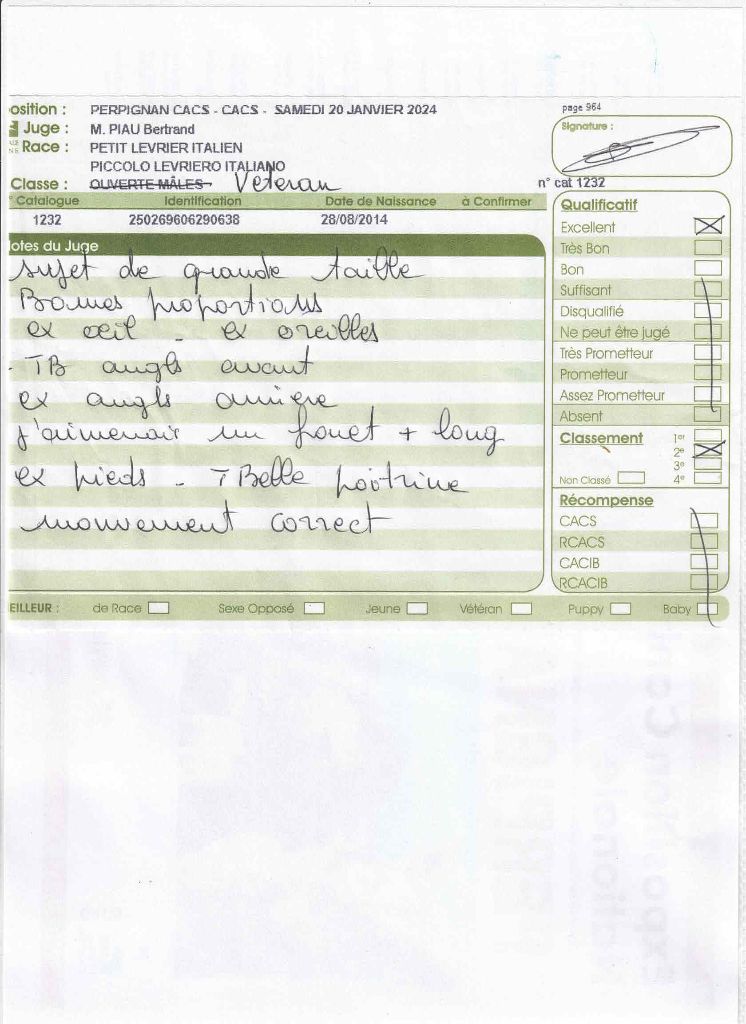 osition : PERPIGNAN CACS - CACS - SAMEDI 20 JANVIER 2024
page 964
Juge : M. PIAU Bertrand
Signature :
Race : PETIT LEVRIER ITALIEN
PICCOLO LEVRIERO ITALIANO
Classe : OUVERTE MÂLES Veteran
n° cat 1232
° Catalogue Identification Date de Naissance à Confirmer
1232 250269606290638 28/08/2014
lotes du Juge
sujet de grande taille
Bonnes proportions
ex œil - ex oreilles
- TB angls avant
ex angls arrière
j'aimerair un fouet + long
ex pieds - TBelle poitrine
mouvement correct
Qualificatif
Excellent
Très Bon
Bon
Suffisant
Disqualifié
Ne peut être jugé
Très Prometteur
Prometteur
Assez Prometteur
Absent
Classement 1er
2e
3e
Non Classé 4e
Récompense
CACS
RCACS
CACIB
RCACIB
EILLEUR : de Race Sexe Opposé Jeune Vétéran Puppy Baby